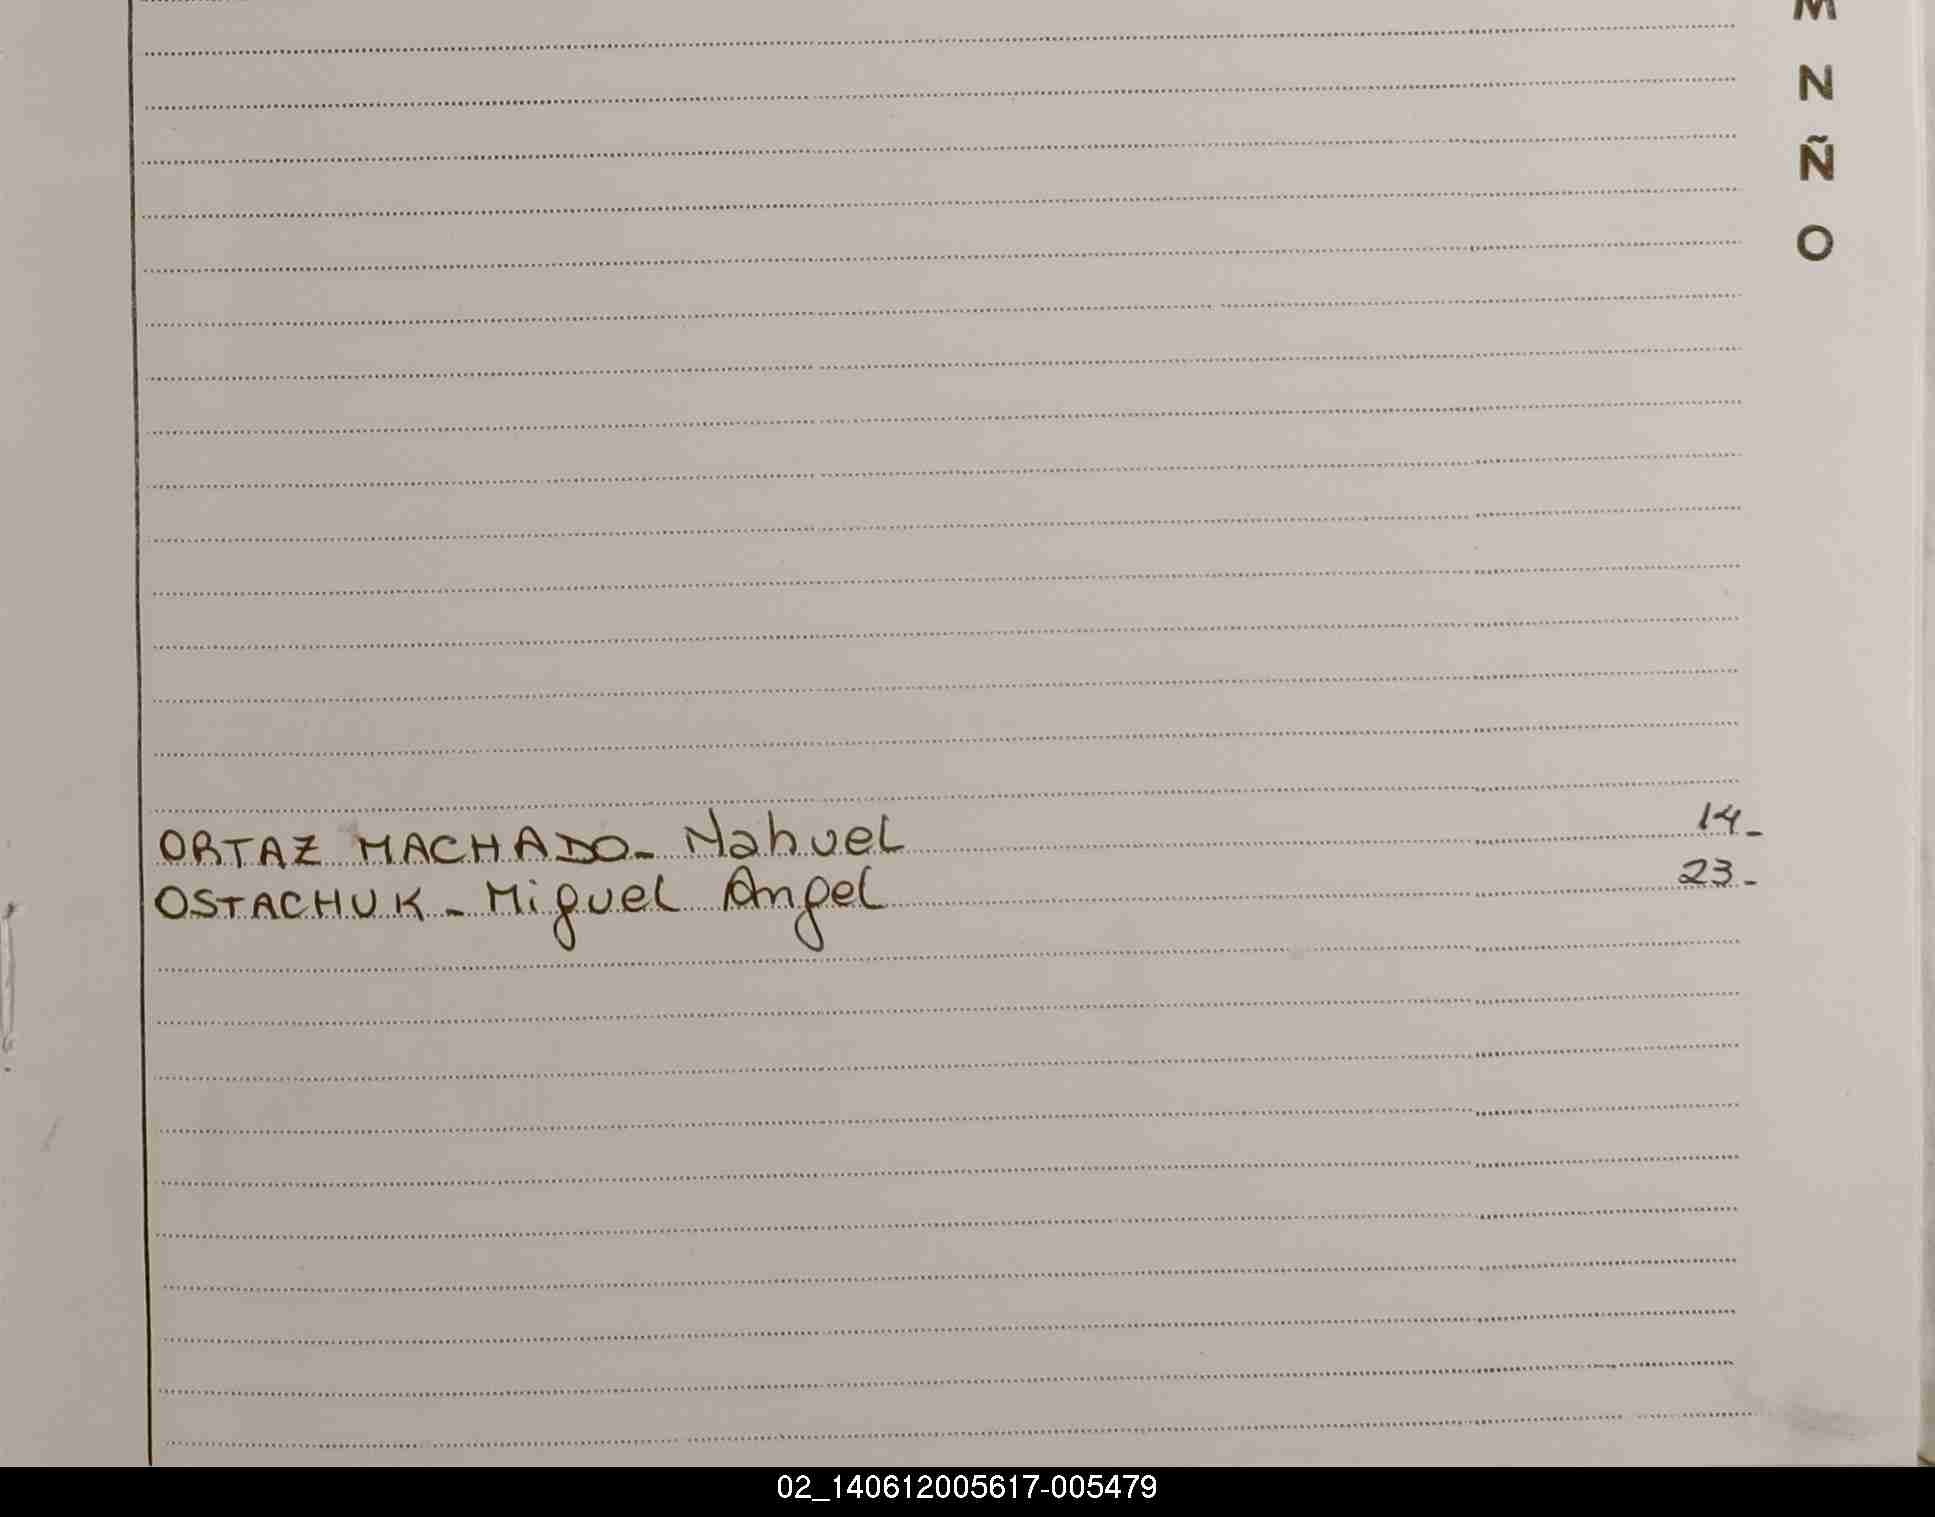 M
N
Ñ
O
ORTAZ MACHADO- Nahuel 14-
OSTACHUK- Miguel Angel 23-
02_140612005617-005479